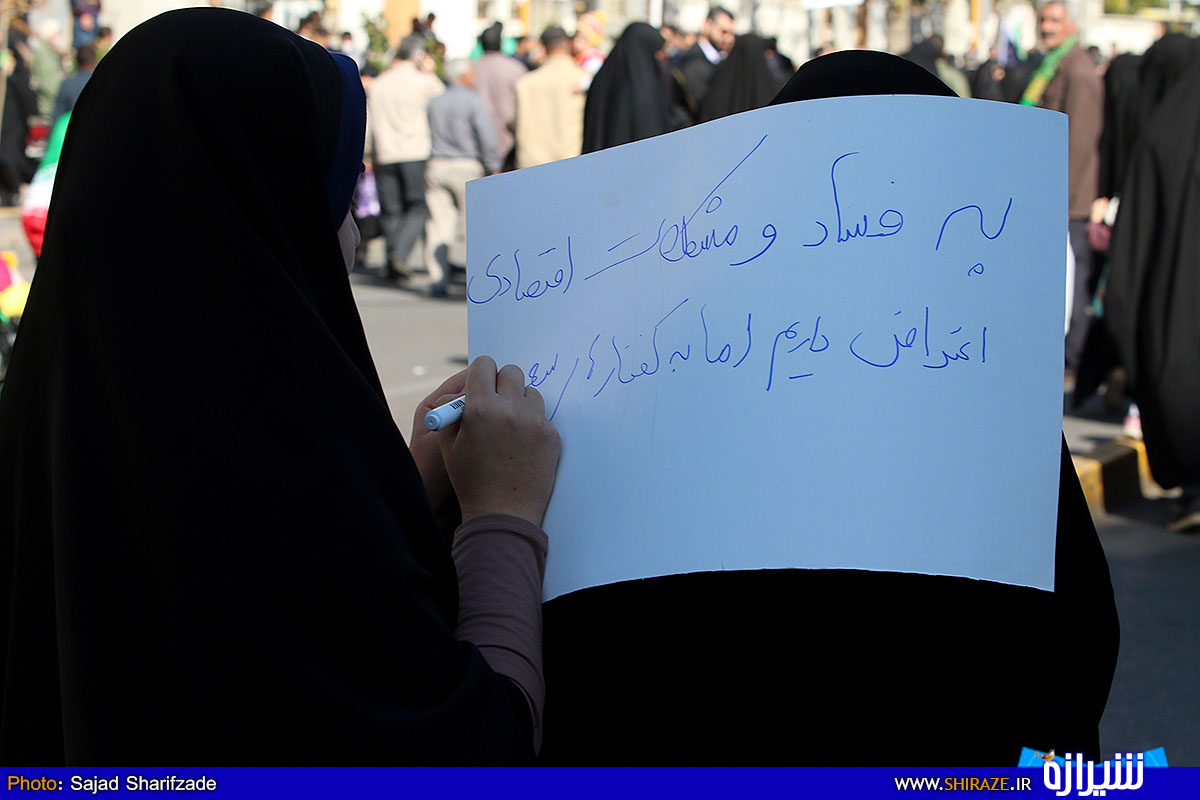 به فساد و مشکلات اقتصادی
اعتراض داریم اما به کفتارهای
Photo: Sajad Sharifzade
www.SHIRAZE.IR شیرازه